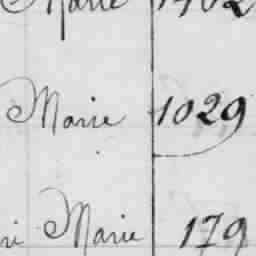 Marie 1702
Marie 1029
Marie 179